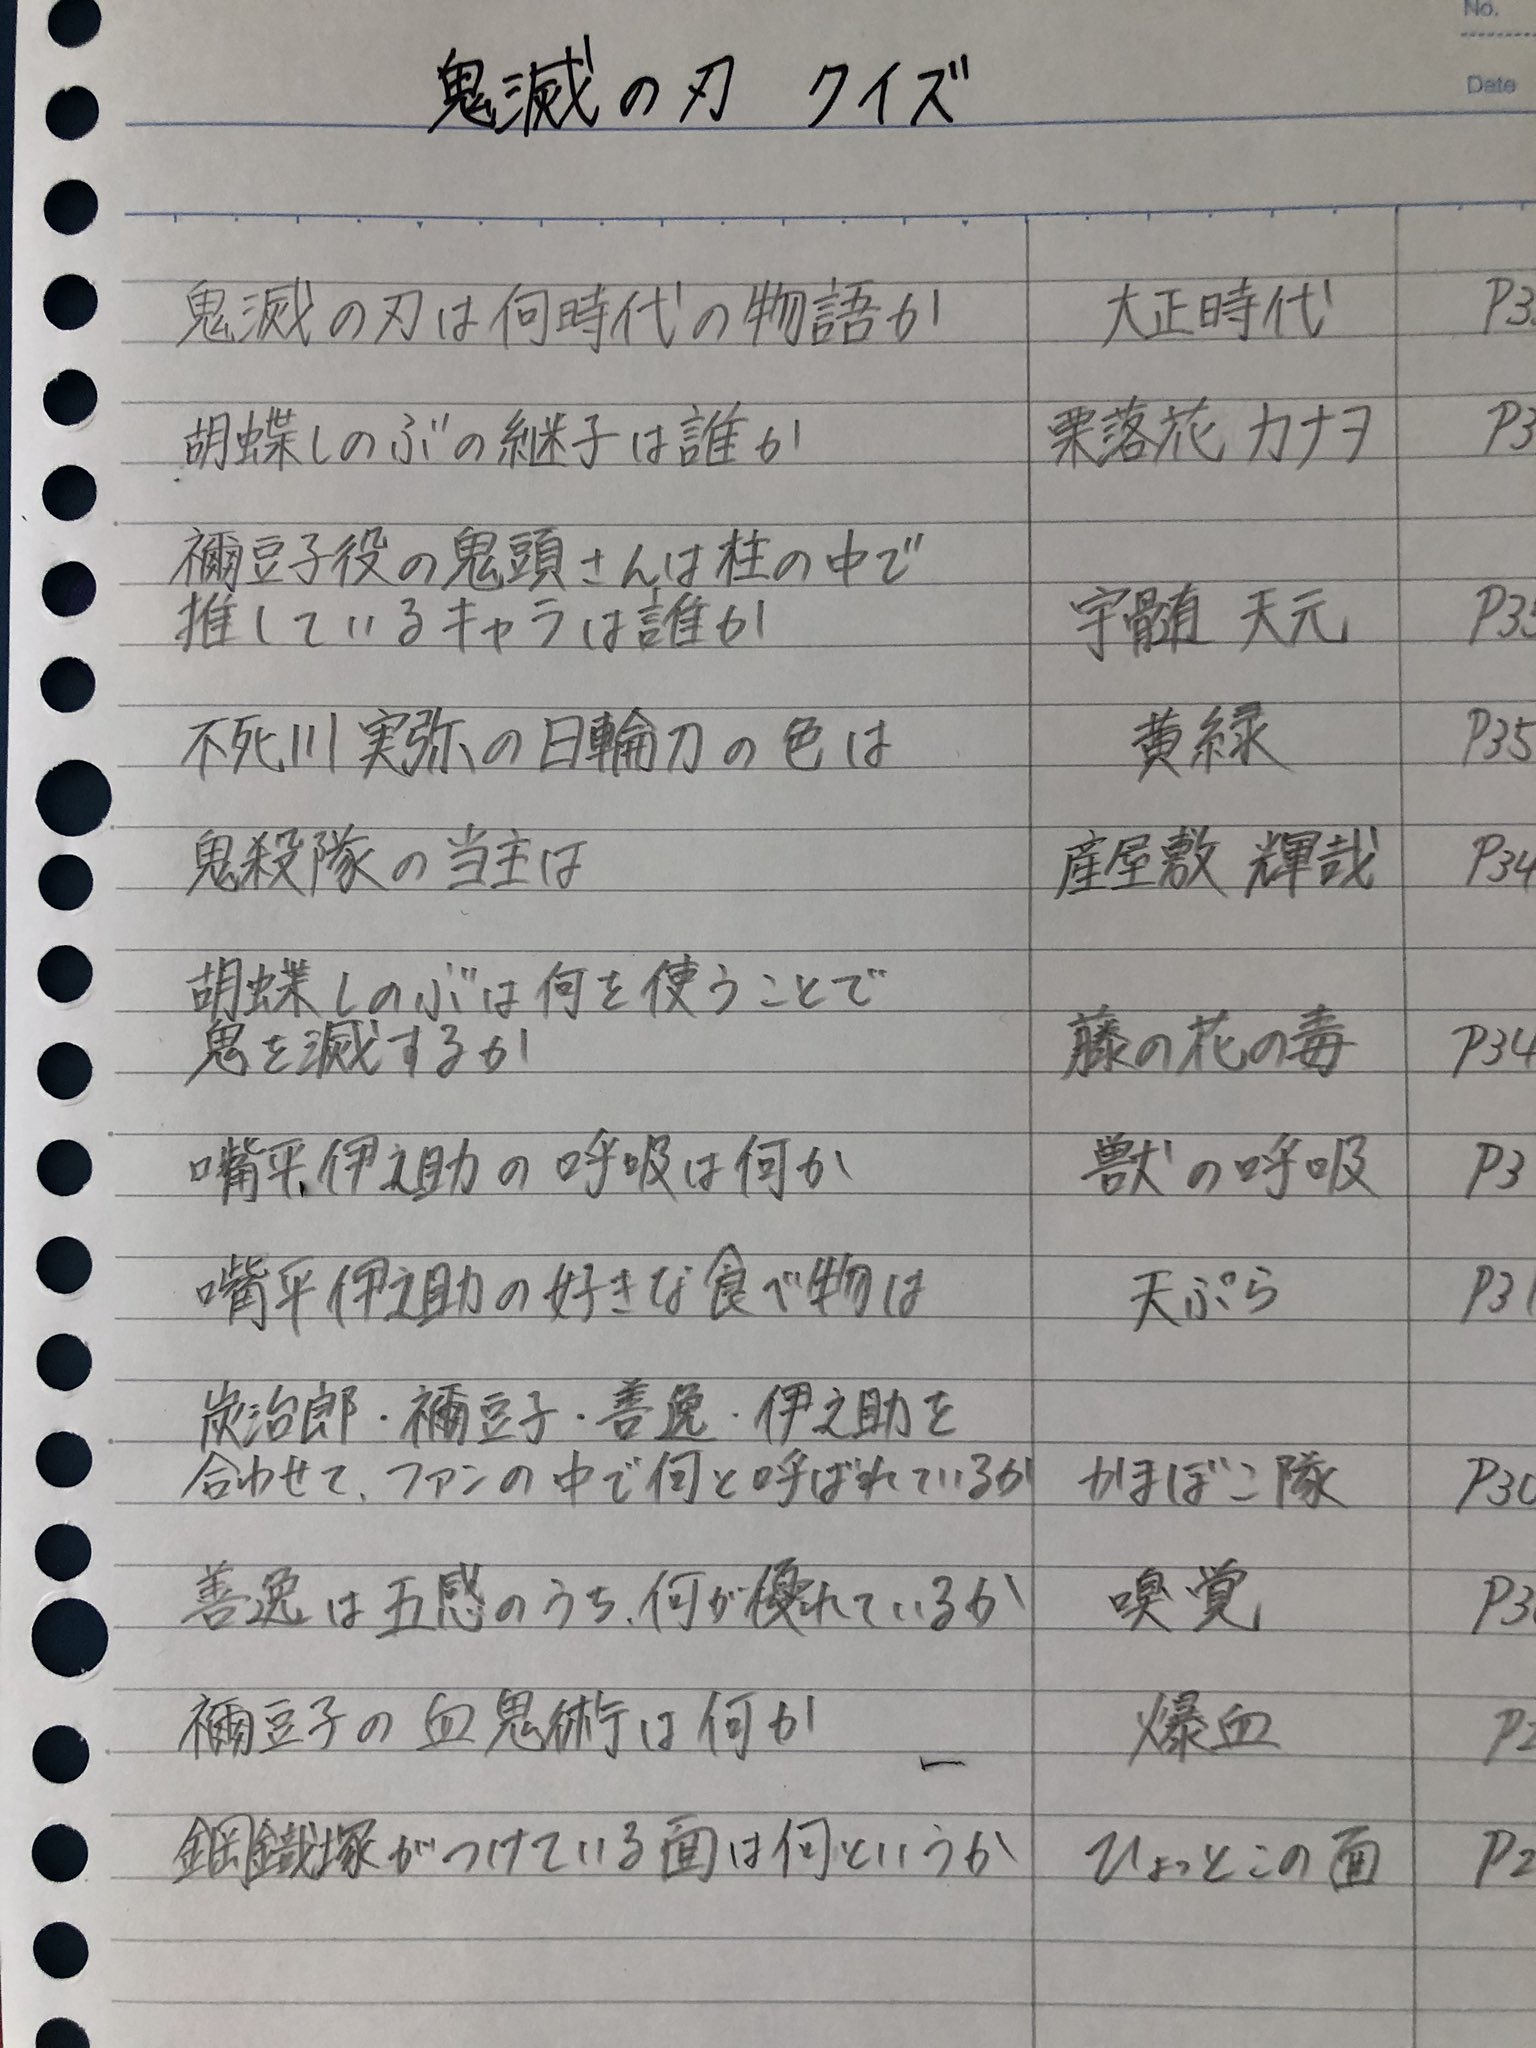 No.
Date
鬼滅の刃 クイズ
鬼滅の刃は何時代の物語か 大正時代 P3
胡蝶しのぶの継子は誰か 栗落花 カナヲ P3
禰豆子役の鬼頭さんは柱の中で
推しているキャラは誰か 宇髄 天元 P35
不死川実弥の日輪刀の色は 黄緑 P35
鬼殺隊の当主は 産屋敷 輝哉 P34
胡蝶しのぶは何を使うことで
鬼を滅するか 藤の花の毒 P34
嘴平伊之助の呼吸は何か 獣の呼吸 P3
嘴平伊之助の好きな食べ物は 天ぷら P31
炭治郎・禰豆子・善逸・伊之助を
合わせて、ファンの中で何と呼ばれているか かまぼこ隊 P30
善逸は五感のうち、何が優れているか 嗅覚 P3
禰豆子の血鬼術は何か 爆血 P2
鋼鐵塚がつけている面は何というか ひょっとこの面 P2